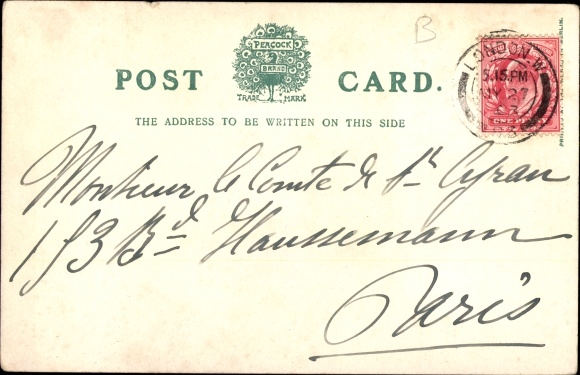 B
PEACOCK
BRAND
TRADE MARK
POST CARD.
THE ADDRESS TO BE WRITTEN ON THIS SIDE
LONDON.W
5.15.PM
27
ONE
Monsieur le Comte de St Cyran
153 Bd Haussemann
Paris